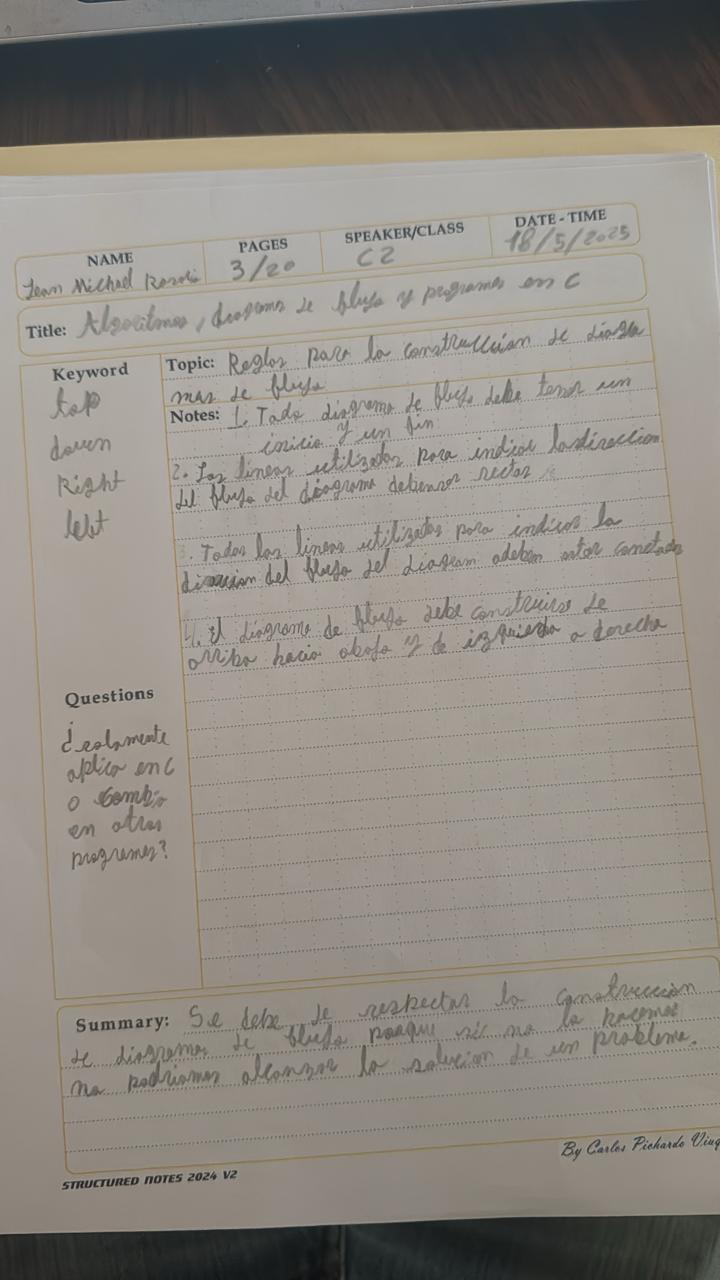 NAME PAGES SPEAKER/CLASS DATE - TIME
Jean Michael 3/20 C2 18/5/2025
Title: Algoritmos, diagrama de flujo y programas en C
Keyword
top
down
Right
left
Topic: Reglas para la construccion de diagra
mas de flujo
Notes: 1. Todo diagrama de flujo debe tener un
inicio y un fin
2. Las lineas utilizadas para indicar la direccion
del flujo del diagrama deben ser rectas
3. Todas las lineas utilizadas para indicar la
direccion del flujo del diagram adeben estar conectadas
4. El diagrama de flujo debe construirse de
arriba hacia abajo y de izquierda a derecha
Questions
¿solamente
aplica en C
o cambia
en otros
programas?
Summary: Se debe de respectar la construccion
de diagramas de flujo porque si no la hacemos
no podriamos alcanzar la solucion de un problema.
By Carlos Pichardo Viuq
STRUCTURED NOTES 2024 V2